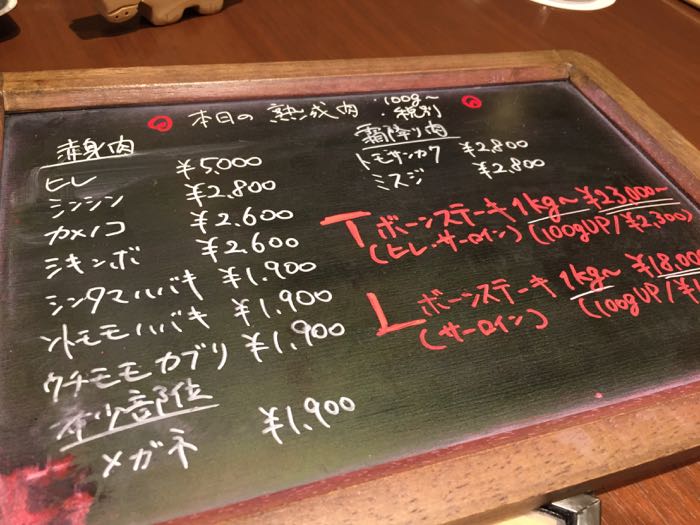 本日の 熟成肉 ・100g〜
・税別
赤身肉
ヒレ ¥5,000
シンシン ¥2,800
カメノコ ¥2,600
シキンボ ¥2,600
シンタマハバキ ¥1,900
ソトモモハバキ ¥1,900
ウチモモカブリ ¥1,900
希少部位
メガネ ¥1,900
霜降り肉
トモサンカク ¥2,800
ミスジ ¥2,800
Tボーンステーキ 1kg〜 ¥23,000〜
(ヒレ・サーロイン) (100gUP/¥2,300)
Lボーンステーキ 1kg〜 ¥18,000
(サーロイン) (100gUP/¥1